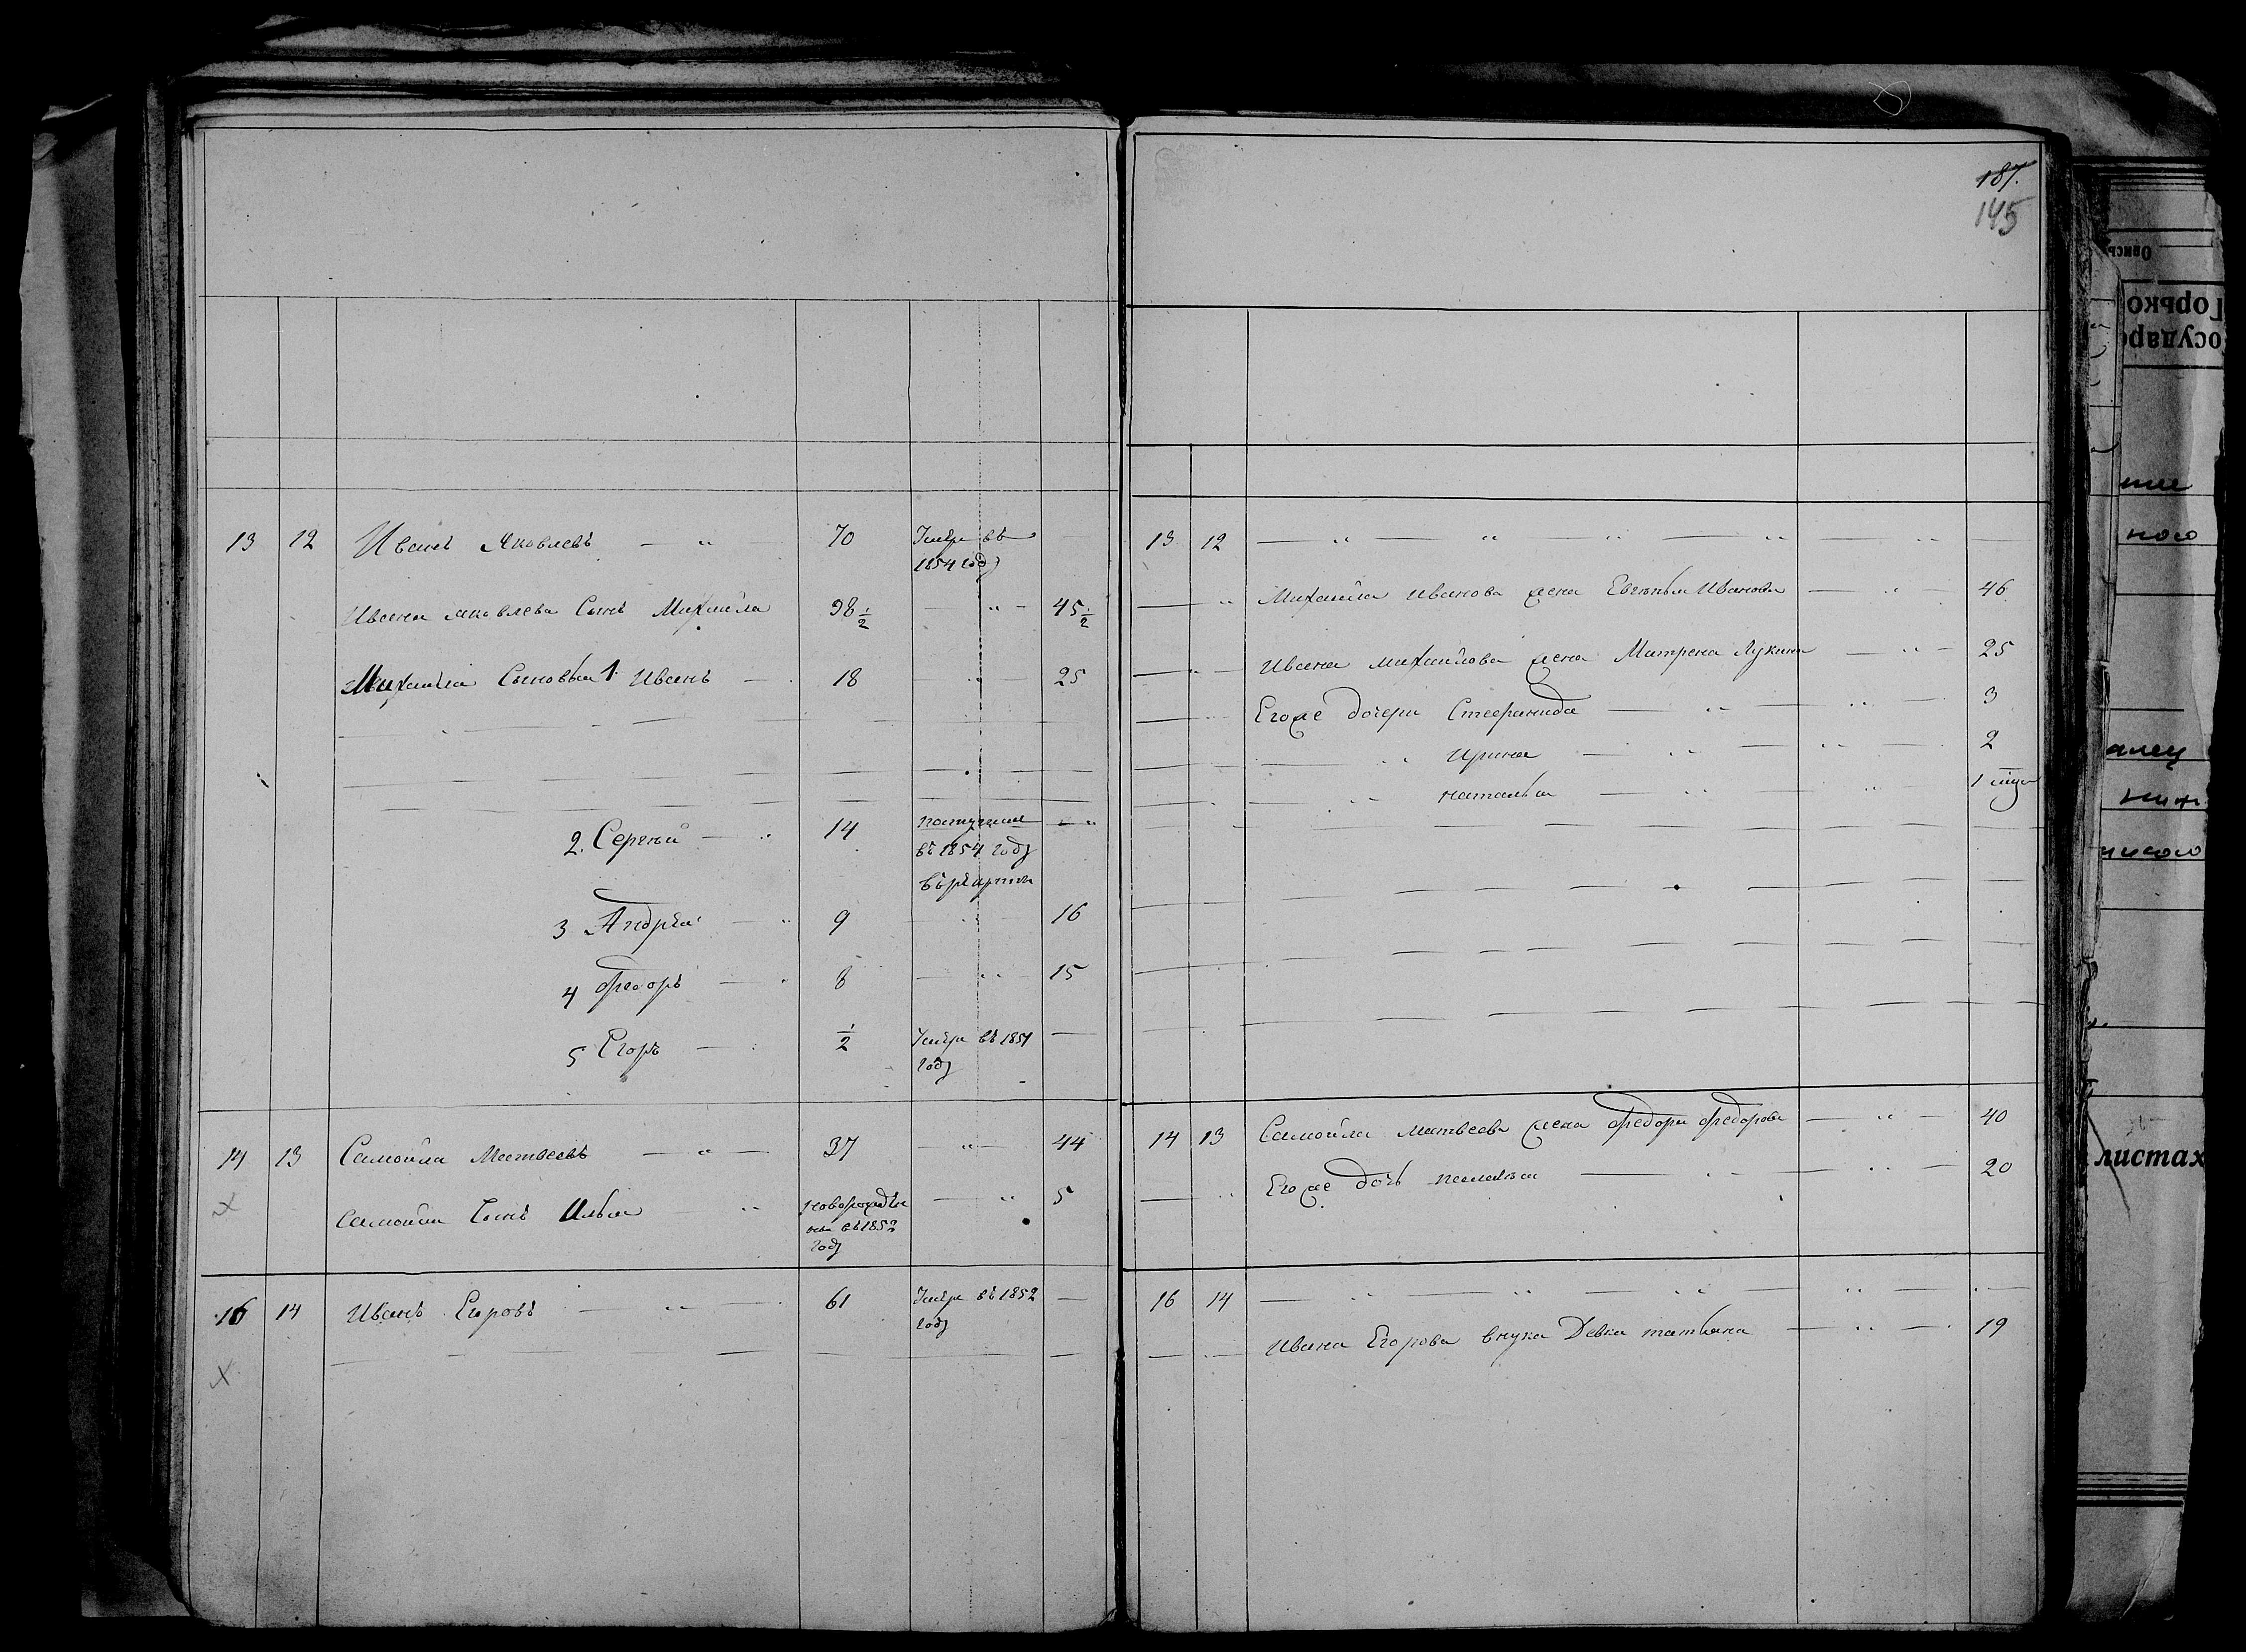 187.
145
13 12 Иванъ Яковлевъ — " 70 Умере въ
1854 году
Ивана Яковлева Сынъ Михайла 38 1/2 — " — 45 1/2
Михайла Сыновья 1. Иванъ — 18 — " 25
2. Сергѣй — " 14 поступилъ — "
въ 1854 году
въ рекруты
3 Андрѣй — " 9 — " 16
4 Федоръ — " 8 — " — 15
5 Егоръ — 1/2 Умере въ 1851 —
году
14 13 Самойла Матвеевъ — " — 37 — " — 44
Самойлы Сынъ Илья — " новорожден — " 5
въ 1852
году
16 14 Иванъ Егоровъ — " — 61 Умере въ 1852 —
году
13 12 — " — " — " — " — " —
— " Михайла Иванова жена Евгенья Иванова — " — 46
— " — Ивана Михайлова жена Матрена Лукина — " — 25
— " Егоже дочери Стефанида — " — " 3
" Ирина — " — " — 2
" Наталья — " " 1
14 13 Самойлы Матвеева жена Федора Федорова — " — 40
— " Егоже дочь Пелагея — " — " — 20
16 14 — " — " — " — " — " —
— " — Ивана Егорова внука Девка Татьяна — " — 19
Опись
Горько
осудар
ного
листах